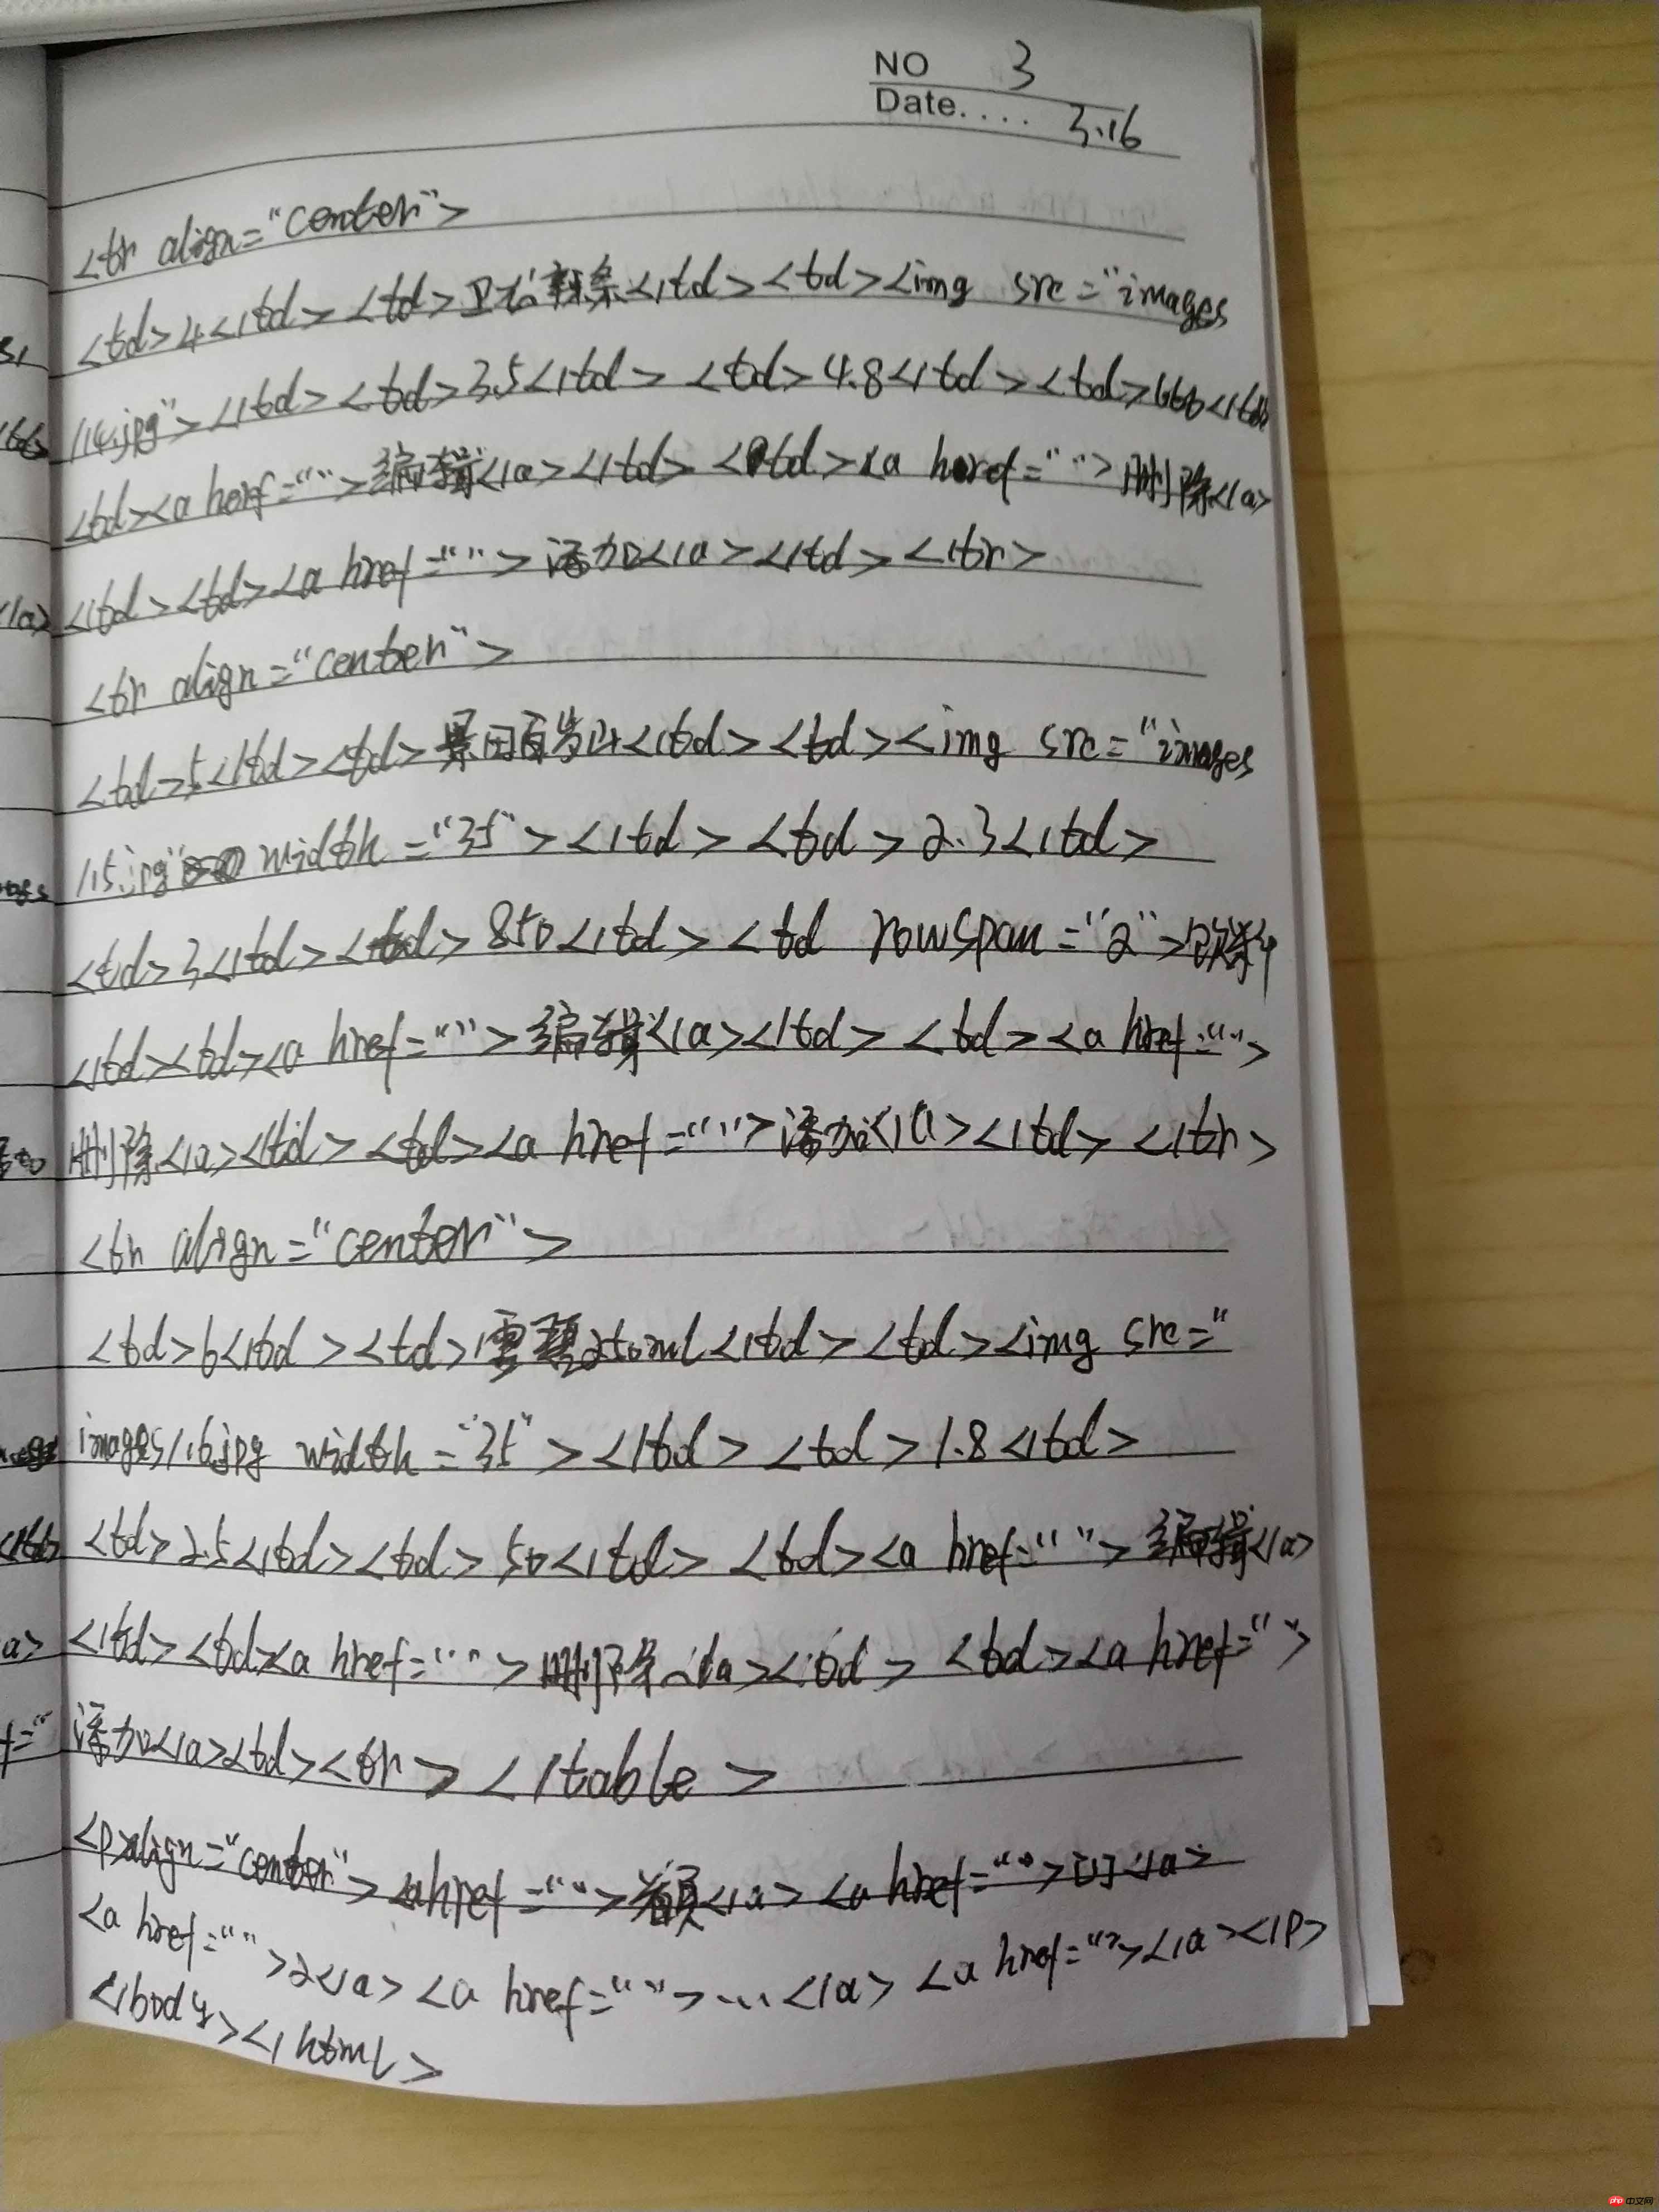 NO 3
Date.... 3.16
<tr align="center">
<td>4</td><td>卫龙辣条</td><td><img src="images
/14.jpg"></td><td>3.5</td><td>4.8</td><td>660</td>
<td><a href="">编辑</a></td><td><a href="">删除</a>
</td><td><a href="">添加</a></td></tr>
<tr align="center">
<td>5</td><td>景田百岁山</td><td><img src="images
/15.jpg" width="35"></td><td>2.3</td>
<td>3</td><td>850</td><td rowspan="2">饮料
</td><td><a href="">编辑</a></td><td><a href="">
删除</a></td><td><a href="">添加</a></td></tr>
<tr align="center">
<td>6</td><td>雪碧250ml</td><td><img src="
images/16.jpg width="35"></td><td>1.8</td>
<td>2.5</td><td>50</td><td><a href="">编辑</a>
</td><td><a href="">删除</a></td><td><a href="">
添加</a><td><tr></table>
<p align="center"><a href=""></a><a href=""></a>
<a href="">2</a><a href="">...</a><a href=""></a></p>
</body></html>
php 中文网